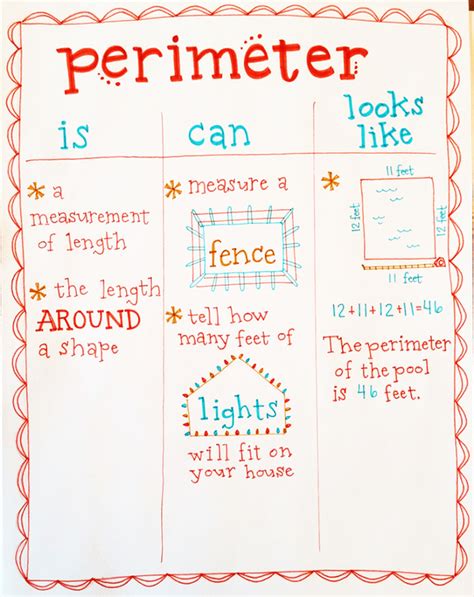 perimeter
is
* a
measurement
of length
* the length
AROUND
a shape
can
* measure a
fence
* tell how
many feet of
lights
will fit on
your house
looks
like
*
11 feet
12 feet
12 feet
11 feet
12+11+12+11=46
The perimeter
of the pool
is 46 feet.